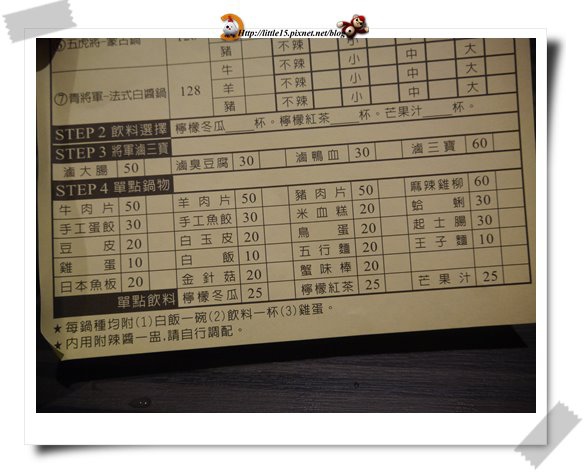 Http://little15.pixnet.net/blog
⑥五虎將-蒙古鍋
豬 不辣 小
牛 不辣 小 中 大
⑦青將軍-法式白醬鍋 128 羊 不辣 小 中 大
豬 不辣
STEP 2 飲料選擇 檸檬冬瓜____杯。檸檬紅茶____杯。芒果汁____杯。
STEP 3 將軍滷三寶
滷大腸 50 滷臭豆腐 30 滷鴨血 30 滷三寶 60
STEP 4 單點鍋物
牛肉片 50 羊肉片 50 豬肉片 50 麻辣雞柳 60
手工蛋餃 30 手工魚餃 30 米血糕 20 蛤蜊 30
豆皮 20 白玉皮 20 鳥蛋 20 起士腸 30
雞蛋 10 白飯 10 五行麵 20 王子麵 10
日本魚板 20 金針菇 20 蟹味棒 20
單點飲料 檸檬冬瓜 25 檸檬紅茶 25 芒果汁 25
★每鍋種均附(1)白飯一碗(2)飲料一杯(3)雞蛋。
★內用附辣醬一盅,請自行調配。